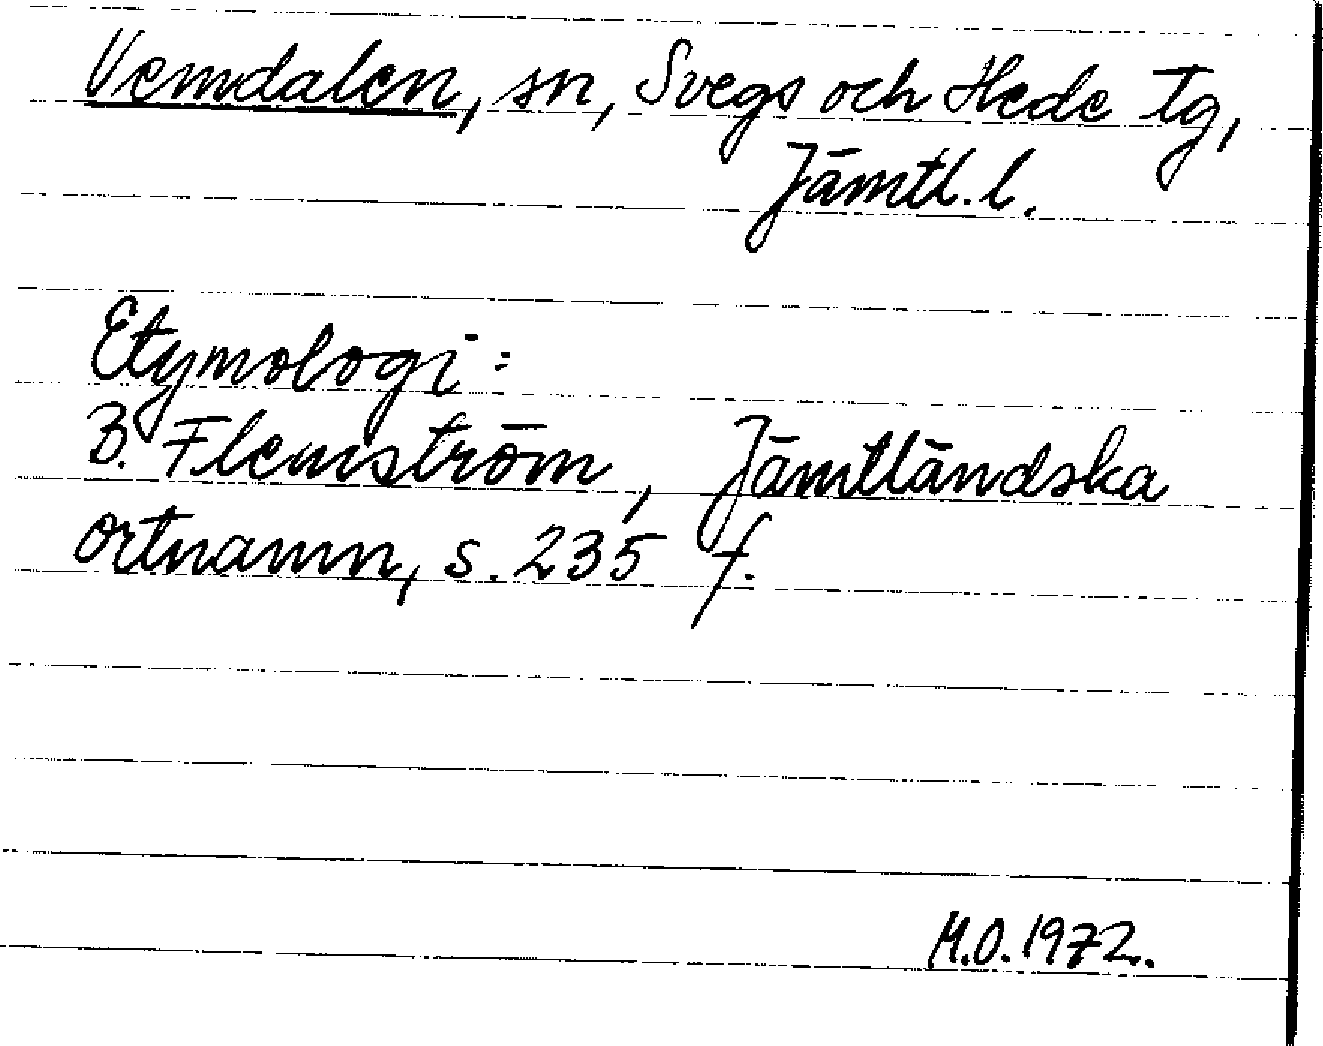 Vemdalen, sn, Svegs och Hede tg,
Jämtl. l.
Etymologi:
B. Flemström, Jämtländska
ortnamn, s. 235 f.
M.O. 1972.